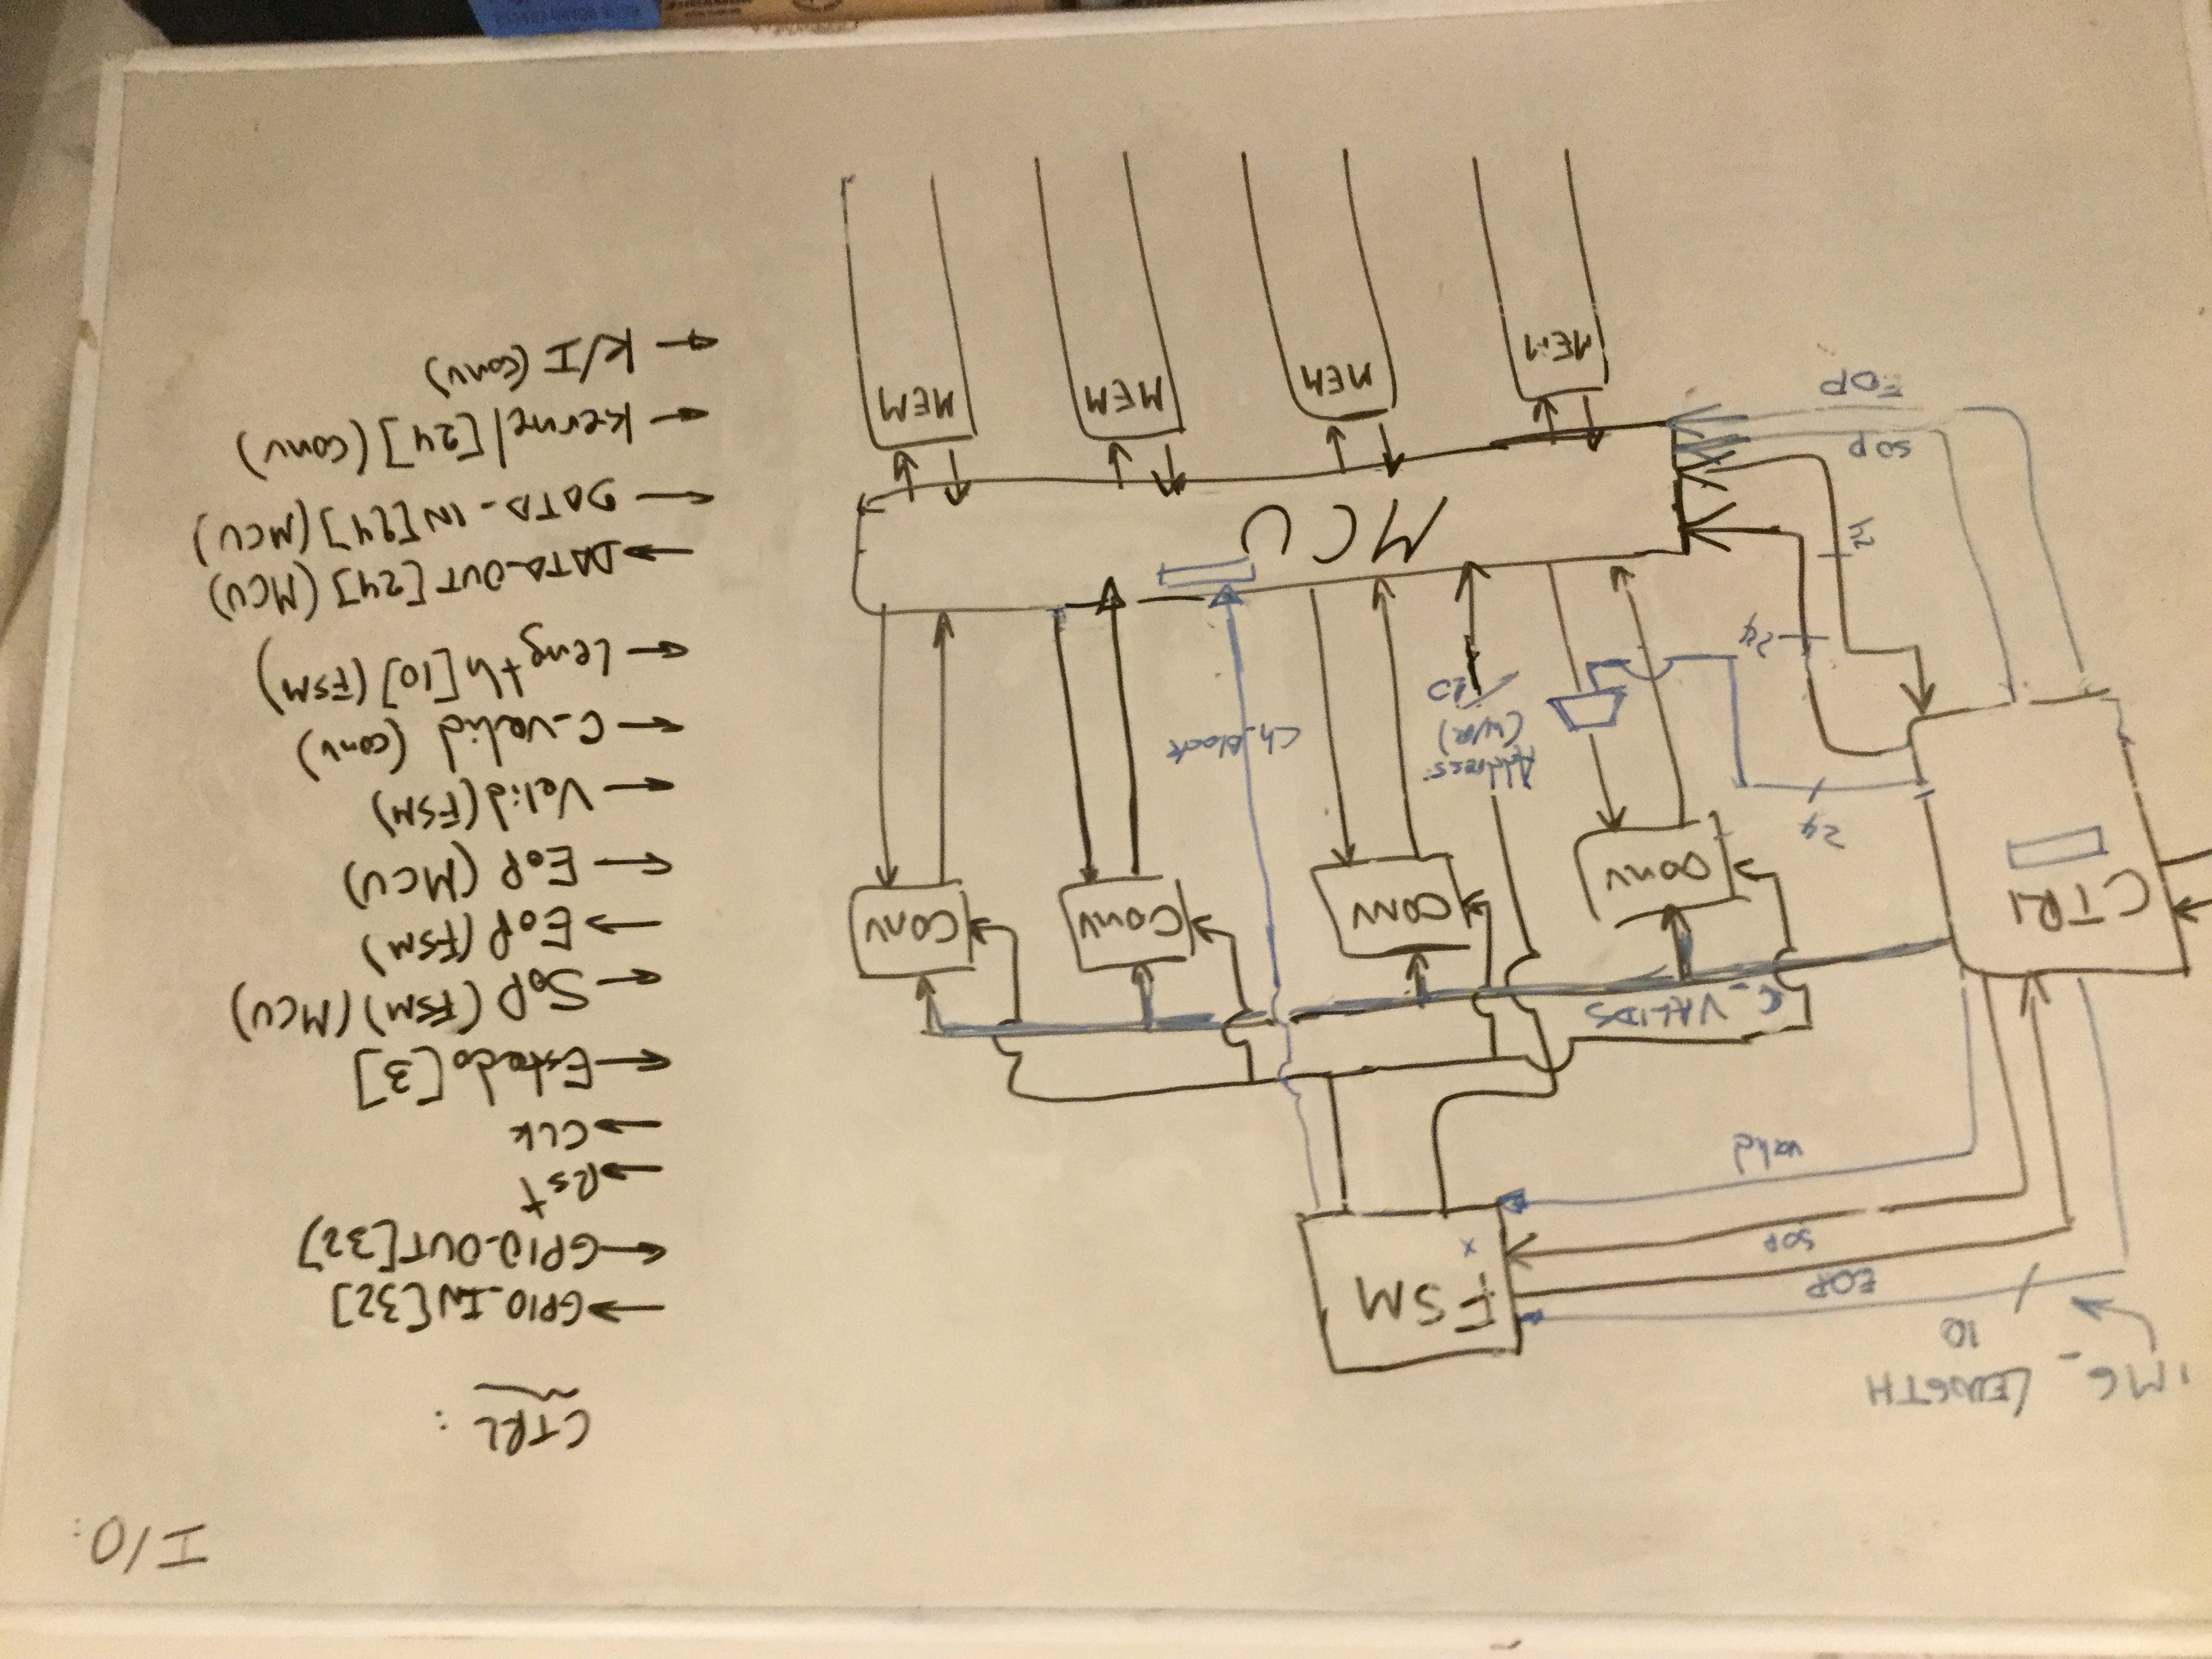 I/O:
IMG_LENGTH
10
FSM
x
EOP
SOP
valid
C_VALIDS
CTRL
conv
conv
conv
conv
24
Address
(W/R)
10
Ch_Block
24
24
MCU
SOP
EOP
MEM
MEM
MEM
MEM
CTRL:
→GPIO_IN[32]
←GPIO_OUT[32]
→Rst
→CLK
←Estado[3]
←SoP (FSM)(MCU)
→EoP (FSM)
←EoP (MCU)
←Valid (FSM)
←C_valid (conv)
←Length[10](FSM)
→DATA_OUT[24](MCU)
←DATA_IN[24](MCU)
←Kernel[24](conv)
←K/I (conv)